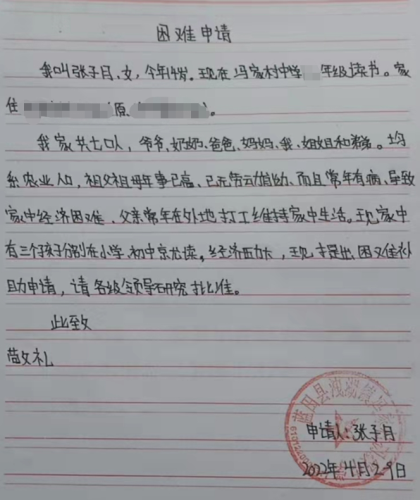 困难申请
我叫张子月、女，今年14岁。现在冯家村中学 年级读书。家
住 （原 ）。
我家共七口人，爷爷、奶奶、爸爸、妈妈、我、姐姐和弟弟。均
系农业人口，祖父祖母年事已高、已无劳动能力、而且常年有病、导致
家中经济困难、父亲常年在外地打工维持家中生活。现家中
有三个孩子分别在小学、初中就读。经济压力大，现提出困难补
助申请，请各级领导研究批准。
此致
敬礼
申请人：张子月
2022年4月29日
蓝田县